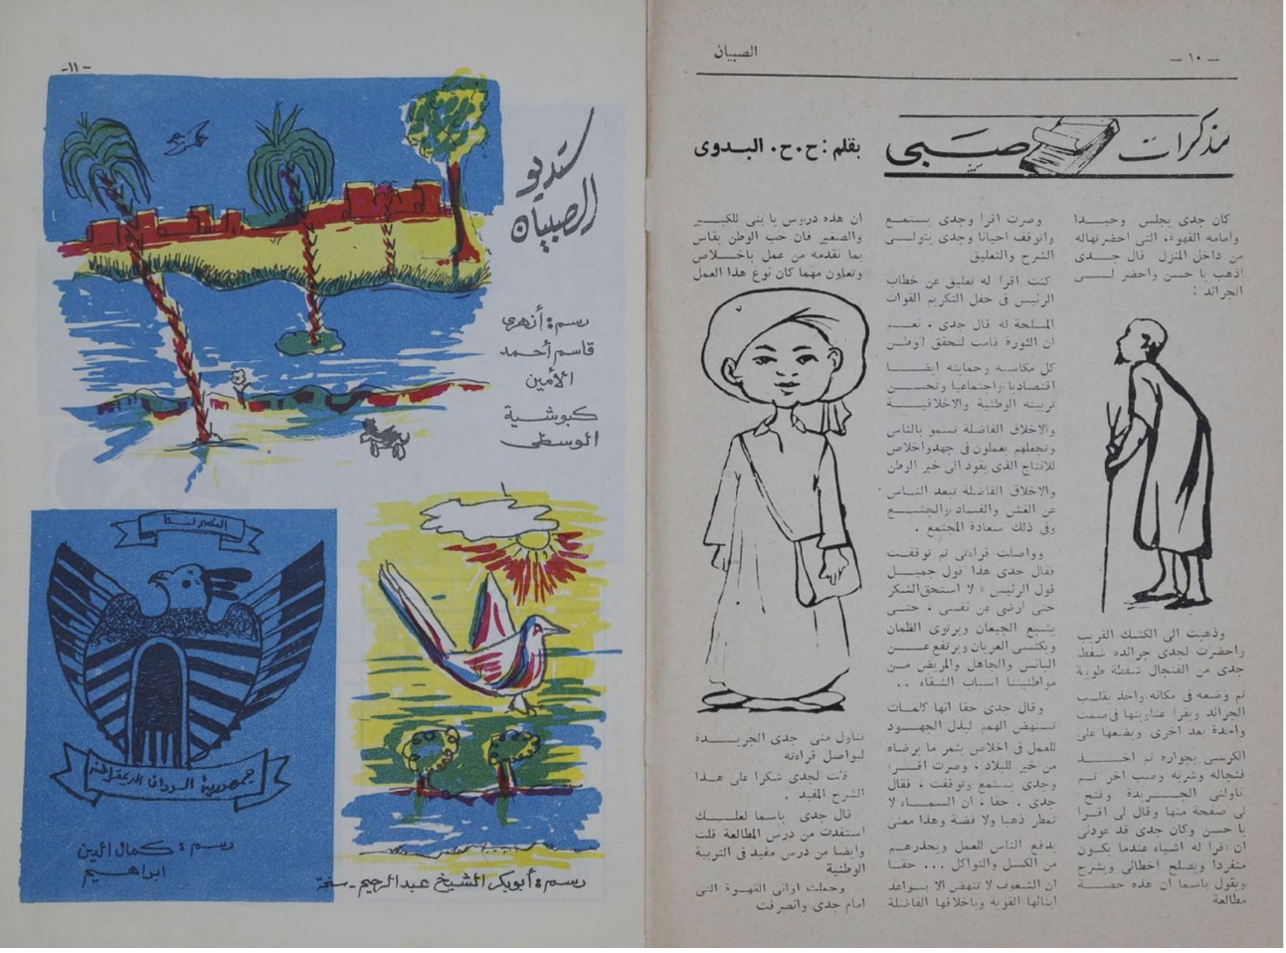 - ١٠ -
الصبيان
مذكرات صبى
بقلم : ح . ح . البدوى
كان جدى يجلس وحيدا
وأمامه القهوة، التى احضرتها له
من داخل المنزل قال جدى
اذهب يا حسن واحضر لى
الجرائد :
وذهبت الى الكشك القريب
واحضرت لجدى جرائده شفط
جدى من الفنجال شفطة طويلة
ثم وضعه فى مكانه واخذ يقلب
الجرائد ويقرأ عناوينها فى صمت
واحدة بعد اخرى ويضعها على
الكرسى بجواره ثم اخذ
فنجاله وشربه وصب اخر ثم
ناولنى الجريدة وفتح
لى صفحة منها وقال لى اقرا
يا حسن وكان جدى قد عودنى
ان اقرا له اشياء عندما يكون
منفردا ويصلح اخطائى ويشرح
ويقول باسما ان هذه حصة
مطالعة
وصرت اقرا وجدى يستمع
واتوقف احيانا وجدى يتولى
الشرح والتعليق
كنت اقرا له تعليق عن خطاب
الرئيس فى حفل التكريم القوات
المسلحة له قال جدى ، نعم
ان الثورة قامت لتحقق لوطن
كل مكاسبه وحمايته ايضا
اقتصاديا واجتماعيا وتحسن
تربيته الوطنية والاخلاقية
والاخلاق الفاضلة تسمو بالناس
وتجعلهم يعملون فى جهد واخلاص
للانتاج الذى يقود الى خير الوطن
والاخلاق الفاضلة تبعد الناس
عن الغش والفساد والجشع
وفى ذلك سعادة المجتمع .
وواصلت قراءتى ثم توقفت
فقال جدى هذا قول جميل
قول الرئيس « لا استحق الشكر
حتى ارضى عن نفسى ، حتى
يشبع الجيعان ويرتوى الظمان
ويكتسى العريان ويرتفع عن
البائس والجاهل والمريض من
مواطنيننا اسباب الشقاء ..
وقال جدى حقا انها كلمات
تستنهض الهمم لبذل الجهود
للعمل فى اخلاص يثمر ما يرضاه
من خير للبلاد . وصرت اقرا
وجدى يستمع وتوقفت ، فقال
جدى . حقا ، ان السماء لا
تمطر ذهبا ولا فضة وهذا معنى
يدفع الناس للعمل ويحذرهم
من الكسل والتواكل ... حقا
ان الشعوب لا تنهض الا بسواعد
ابنائها القوية وباخلاقها الفاضلة
ان هذه دروس يا بنى للكبير
والصغير فان حب الوطن يقاس
بما نقدمه من عمل باخلاص
وتعاون مهما كان نوع هذا العمل
تناول منى جدى الجريدة
ليواصل قراءته
قلت لجدى شكرا على هذا
الشرح المفيد .
قال جدى باسما لعلك
استفدت من درس المطالعة قلت
وايضا من درس مفيد فى التربية
الوطنية
وحملت اوانى القهوة التى
امام جدى وانصرفت
- ١١ -
ستديو
الصبيان
رسم : أزهرى
قاسم أحمد
الأمين
كبوشية
الوسطى
النصر لنا
جمهورية السودان الديمقراطية
رسم : كمال الدين
ابراهيم
رسم : أبوبكر الشيخ عبد الرحيم - سنجة